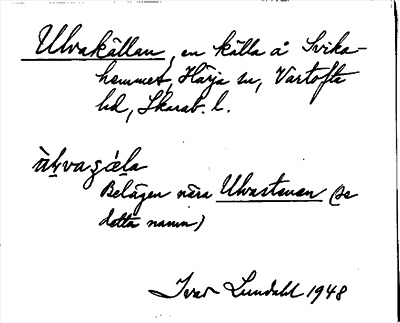 Ulvakällan, en källa å Svika-
hemmet, Härja sn, Vartofta
hd, Skarab. l.
Belägen nära Ulvastenen (se
detta namn)
Ivar Lundahl 1948